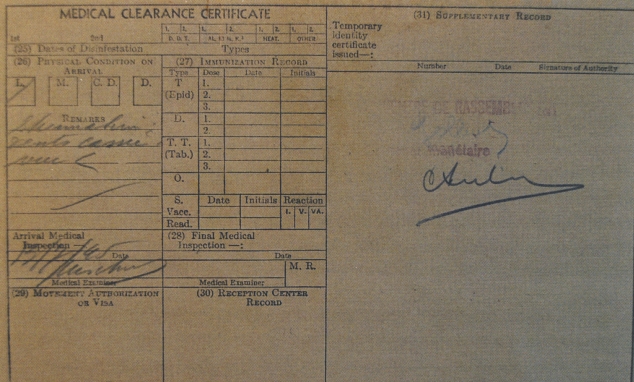 MEDICAL CLEARANCE CERTIFICATE
1. 2. 1. 2. 1. 2. 1. 2.
1st 2nd D. D. T. HEAT. OTHER
(25) Dates of Disinfestation Types
(26) Physical Condition on Arrival
I. M. C. D. D.
Remarks
Arrival Medical Inspection
Date
Medical Examiner
(29) Movement Authorization or Visa
(27) Immunization Record
Type Dose Date Initials
T (Epid) 1.
2.
3.
D. 1.
2
T. T. (Tab.) 1.
2.
3.
O.
S. Date Initials Reaction
Vacc. I. V. VA.
Read.
(28) Final Medical Inspection —:
Date
M. R.
Medical Examiner
(30) Reception Center Record
(31) Supplementary Record
Temporary identity certificate issued—:
Number Date Signature of Authority
DE RASSEMBLEMENT